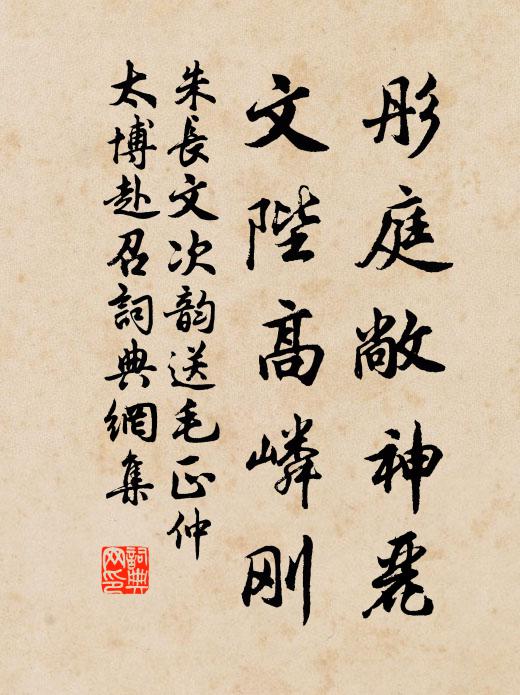 彤庭敞神麗
文陛高嶙刚
朱長文次韵送毛正仲
太博赴召詞典網集
詞典
网印